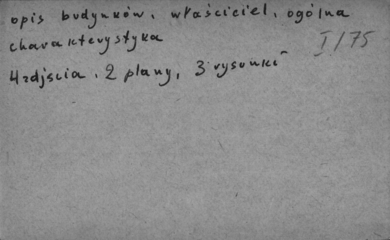 opis budynków, właściciel, ogólna
charakterystyka
I/75
4 zdjęcia, 2 plany, 3 rysunki